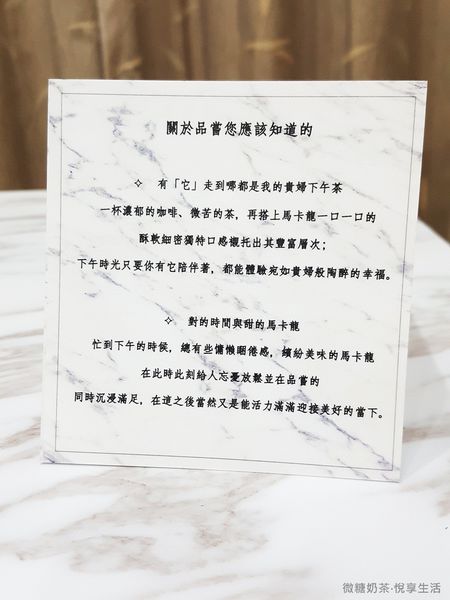 關於品嘗您應該知道的
✧ 有「它」走到哪都是我的貴婦下午茶
一杯濃郁的咖啡、微苦的茶，再搭上馬卡龍一口一口的
酥軟細密獨特口感襯托出其豐富層次；
下午時光只要你有它陪伴着，都能體驗宛如貴婦般陶醉的幸福。
✧ 對的時間與甜的馬卡龍
忙到下午的時侯，總有些慵懶睏倦感，繽紛美味的馬卡龍
在此時此刻給人忘憂放鬆並在品嘗的
同時沉浸滿足，在這之後當然又是能活力滿滿迎接美好的當下。
微糖奶茶·悅享生活